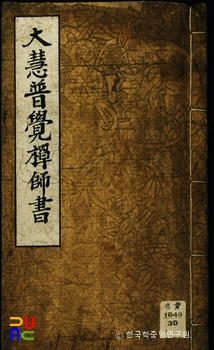 大慧普覺禪師書
1849
30
© 한국학중앙연구원